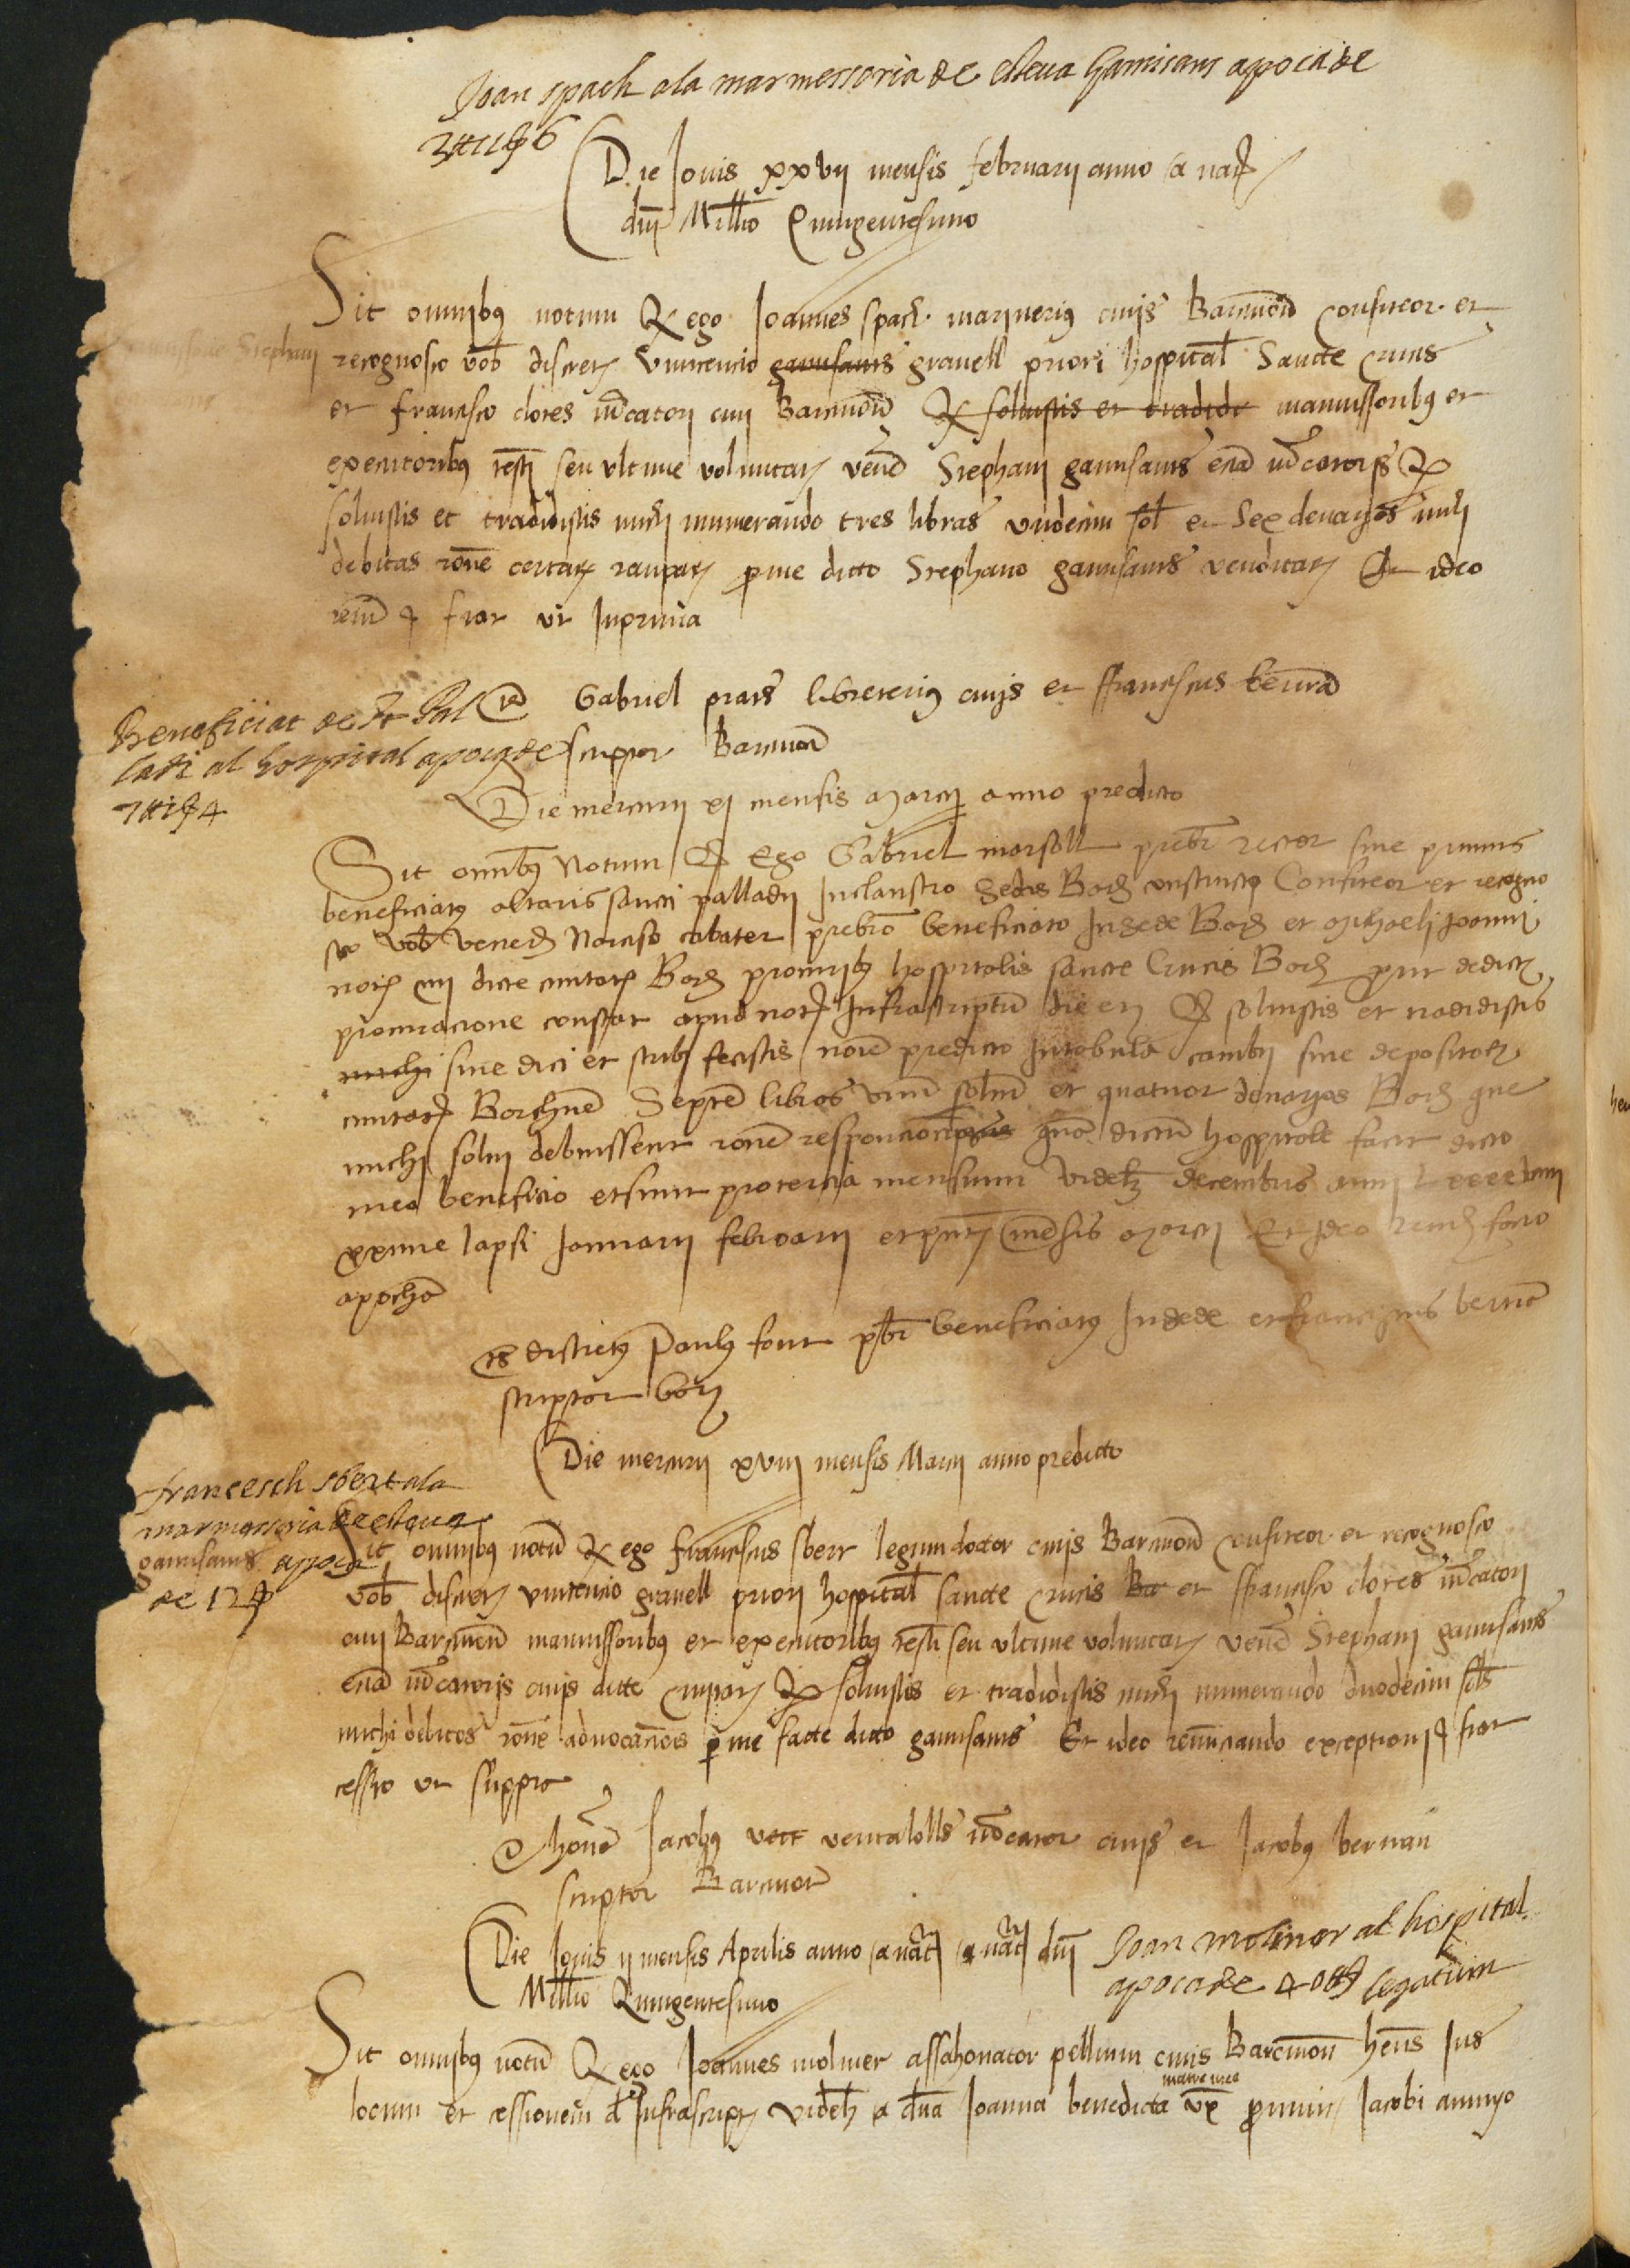 Joan spach ala marmessoria de esteva Gamisans apocade
3 ₶ 11 ß 6
Die Jovis xxvij mensis februarij anno a nat
dnj Millio Quingentesimo
Sit omnibus notum Q ego Joannes spach marinerius civis Barcinon confiteor et
recognosco vob discret Vincencio gamisans gravell priori hospital Sancte Crucis
et francisco clores mcatori civi Barcinon Q solvistis et tradidi manumissoribus et
executoribus testi seu ultime voluntat vend Stephani gamisans eciam mcatoris Q
solvistis et tradidistis michi numerando tres libras undecim sol et sex denarios michi
debitas rone certar raupar p me dicto Stephano gamisans venditar Et ideo
renu fiat ut in prima
Gabriel prats librererius civis et ffranciscus
scriptor Barcinon
Beneficiat de St Pal
ladi al hospital apocade
7 ₶ 1 ß 4
Die mercurij xj mensis Marcij anno predicto
Sit omnibus Notum Q Ego Gabriel morsoll prebr rector sive primus
beneficiatus altaris sancti palladij In claustro Sedis Barch constructi Confiteor et recogno
sco vob Vener Narciso cabater prebro beneficiato In Sede Barch et Michaeli Joanni
not civi dicte civitatis Barch procuribus hospitalis sancte Crucis Barch prout de dict
procuracione constat apud not Infrascriptum die et Q solvistis et tradidistis
michi sive dici et scribi fecistis nomine predicto In tabula cambij sive depositor
civitatis Barchne Septem libras unum solidum et quatuor denarios Barch que
michi solvi debuissent rone responcionis quam dictum hospitale facit dicto
meo beneficio et sunt pro tercia mensium videlt decembris anni
proxime lapsi Januarij februarij et pntis mensis Marcij Et Ideo renu facio
apocham
Ts discretus Paulus font pbr beneficiatus In Sede et franciscus
scriptor Bar
Die mercurij xviij mensis Marcij anno predicto
francesch sbert ala
marmessoria de esteva
gamisans apoca
de 12 ß
Sit omnibus notum Q ego franciscus sbert legum doctor civis Barcinon confiteor et recognosco
vob discret vincencio gravell priori hospital sancte Crucis Bar et ffrancisco clores mcatori
civi Barcinon manumissoribus et executoribus testi seu ultime voluntat vend Stephani gamisans
eciam mcatoris civis dicte civitat Q solvistis et tradidistis michi numerando duodecim sols
michi debitos rone advocacionis p me facte dicto gamisans Et ideo renunciando exceptioni fiat
cessio ut supra
honor Jacobus vett ventalolls mcator civis et Jacobus
scriptor Barcinon
Die Jovis ij mensis Aprilis anno a nat a nat dnj
Millio Quingentesimo
Joan moliner al hospital
apoca de legatum
Sit omnibus notum Q ego Joannes moliner assahonator pellium civis Barcinon hens Jus
locum et cessionem ab Infrascript videlt a dna Joanna benedicta matre mea ux primis Jacobi